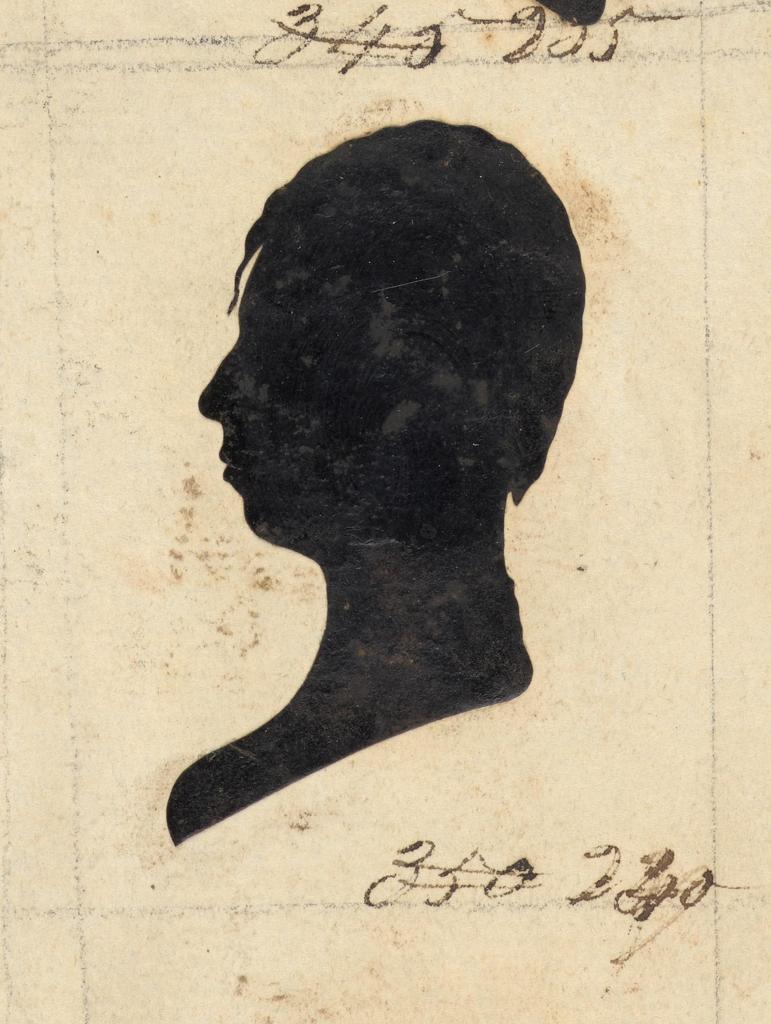 345 235
350 240